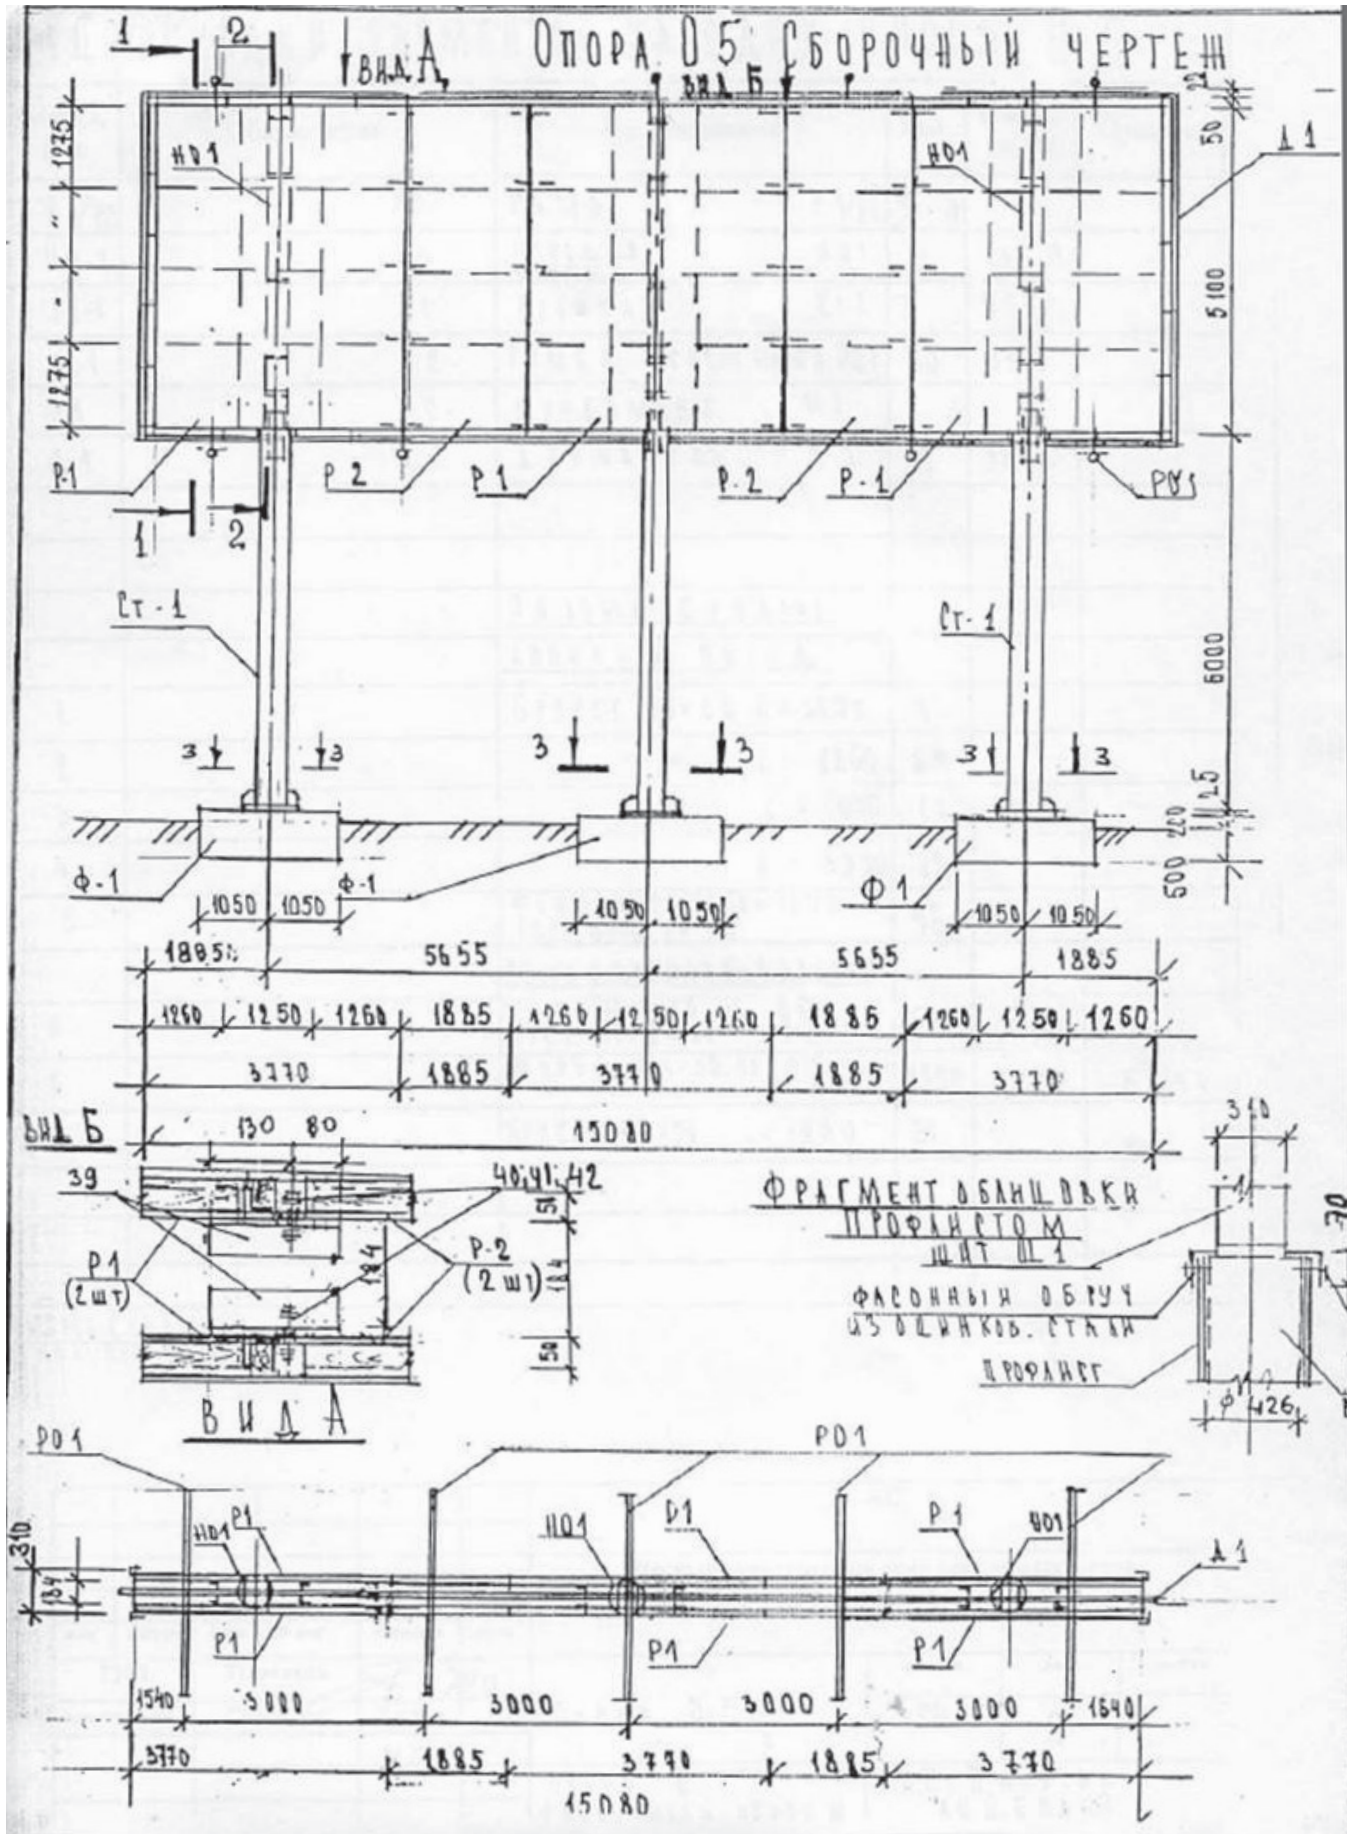 ОПОРА О5 СБОРОЧНЫЙ ЧЕРТЕЖ
1 2 ВИД А ВИД Б
22
1275 50
НО1 НО1 Д1
"
5100
"
1275
Р-1 Р-2 Р1 Р-2 Р-1 РО1
1 2
Ст-1 Ст-1
6000
3 3 3 3 3 3
25
200
500
Ф-1 Ф-1 Ф1
1050 1050 1050 1050 1050 1050
1885 5655 5655 1885
1260 1250 1260 1885 1260 1250 1260 1885 1260 1250 1260
3770 1885 3770 1885 3770
15080
ВИД Б
130 80
39 40;41;42
Р1
(2 шт)
184
Р-2
(2 шт)
184
50
310
ФРАГМЕНТ ОБЛИЦОВКИ
ПРОФЛИСТОМ
ЩИТ Щ1
70
ФАСОННЫЙ ОБРУЧ
ИЗ ОЦИНКОВ. СТАЛИ
ПРОФЛИСТ
φ 426
ВИД А
РО1 РО1
НО1 Р1 НО1 Р1 НО1
310
184
Д1
Р1 Р1 Р1
1540 3000 3000 3000 3000 1540
3770 1885 3770 1885 3770
15080